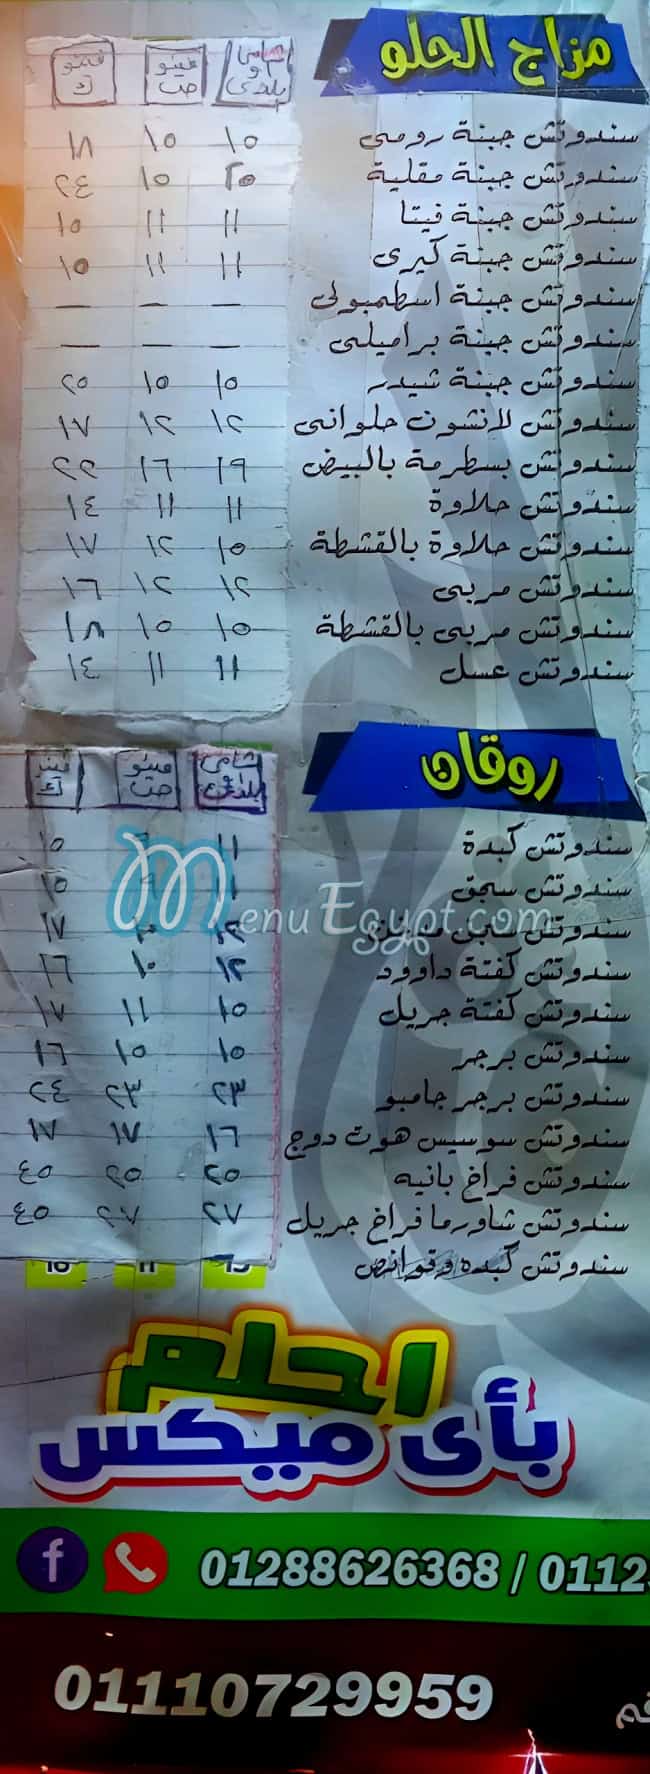 مزاج الحلو
شامى او بلدى فينو ص فينو ك
سندوتش جبنة رومى ١٥ ١٥ ١٨
سندوتش جبنة مقلية ٢٥ ١٥ ٢٤
سندوتش جبنة فيتا ١١ ١١ ١٥
سندوتش جبنة كيرى ١١ ١١ ١٥
سندوتش جبنة اسطمبولى — — —
سندوتش جبنة براميلى — — —
سندوتش جبنة شيدر ١٥ ١٥ ٢٥
سندوتش لانشون حلوانى ١٢ ١٢ ١٧
سندوتش بسطرمة بالبيض ١٩ ١٦ ٢٢
سندوتش حلاوة ١١ ١١ ١٤
سندوتش حلاوة بالقشطة ١٥ ١٢ ١٧
سندوتش مربى ١٢ ١٢ ١٦
سندوتش مربى بالقشطة ١٥ ١٥ ١٨
سندوتش عسل ١١ ١١ ١٤
روقان
شامى او بلدى فينو ص فينو ك
سندوتش كبدة ١١ ٩ ١٥
سندوتش سجق ١١ ٩ ١٥
MenuEgypt.com
سندوتش سجق ١٢ ١٧
سندوتش كفتة داوود ١٢ ١٠ ١٦
سندوتش كفتة جريل ١٥ ١١ ١٧
سندوتش برجر ١٥ ١٥ ١٦
سندوتش برجر جامبو ٢٣ ٢٣ ٢٤
سندوتش سوسيس هوت دوج ١٦ ١٧ ١٧
سندوتش فراخ بانيه ٢٥ ٢٥ ٤٥
سندوتش شاورما فراخ جريل ٢٧ ٢٧ ٤٥
سندوتش كبده وقوانص 15 11 18
احلم
بأى ميكس
01288626368 / 0112
01110729959